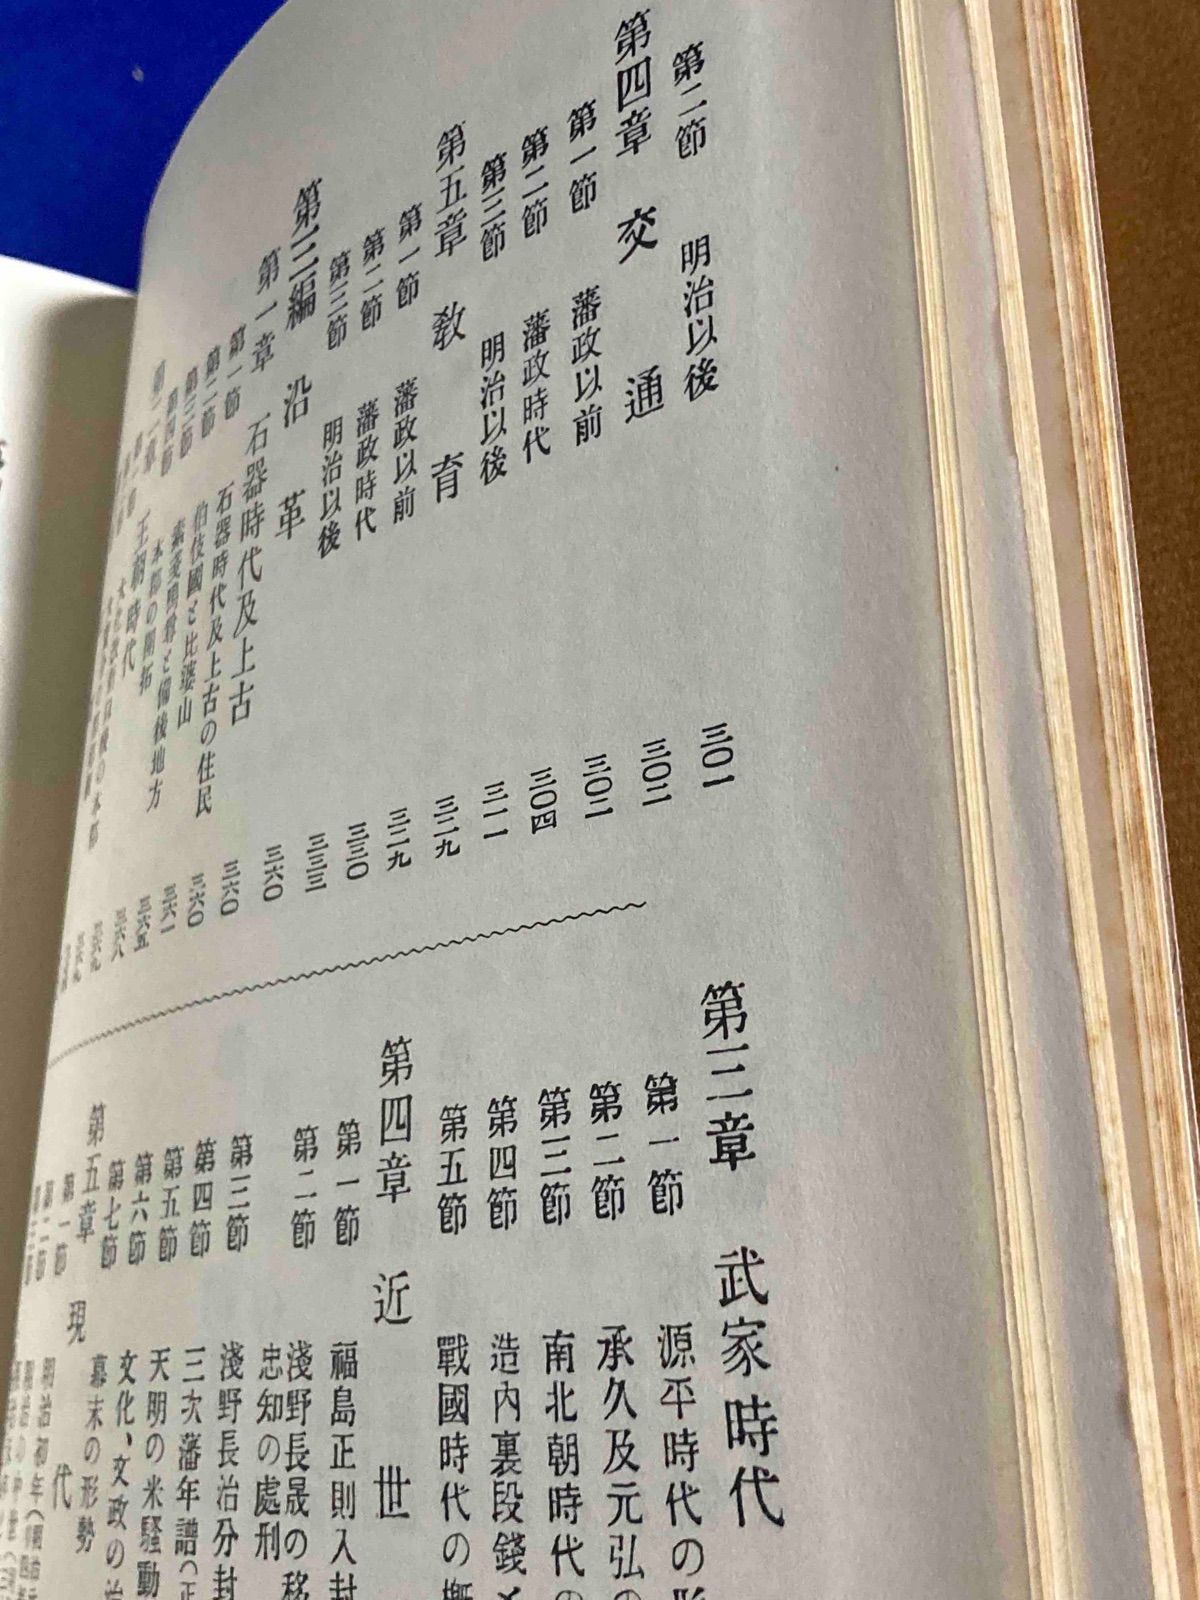 第二節 明治以後 三〇一
第四章 交通 三〇二
第一節 藩政以前 三〇二
第二節 藩政時代 三〇四
第三節 明治以後 三一一
第五章 教育 三二九
第一節 藩政以前 三二九
第二節 藩政時代 三三〇
第三節 明治以後 三三三
第三編 沿革 三六〇
第一章 石器時代及上古 三六〇
第一節 石器時代及上古の住民 三六〇
第二節 伯伎國と比婆山 三六一
第三節 素戔嗚尊と備後地方 三六五
第四節 本郡の開拓
第二章 王朝時代
第三章 武家時代
第一節 源平時代の
第二節 承久及元弘の
第三節 南北朝時代の
第四節 造内裏段錢と
第五節 戰國時代の概
第四章 近世
第一節 福島正則入封
第二節 淺野長晟の移
忠知の處刑
第三節 淺野長治分封
第四節 三次藩年譜（正
第五節 天明の米騒動
第六節 文化、文政の治
第七節 幕末の形勢
第五章 現代
第一節 明治初年（明治元
第二節